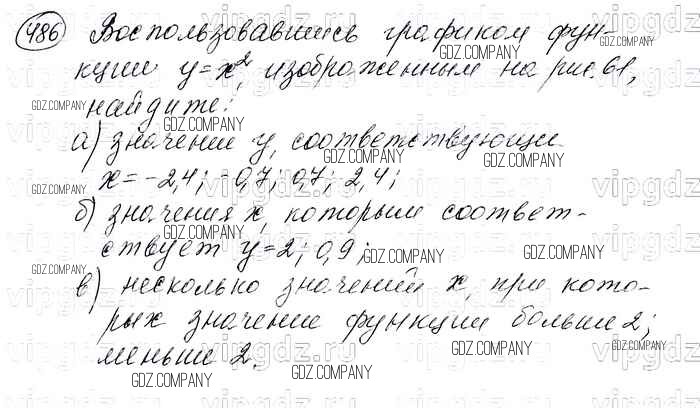 486 Воспользовавшись графиком фун-
кции y=x², изображенным на рис. 61,
найдите:
а) значение y, соответствующи
x=-2,4; -0,7; 0,7; 2,4;
б) значения x, которым соответ-
ствует y=2; 0,9;
в) несколько значений x, при кото-
рых значение функции больше 2;
меньше 2.